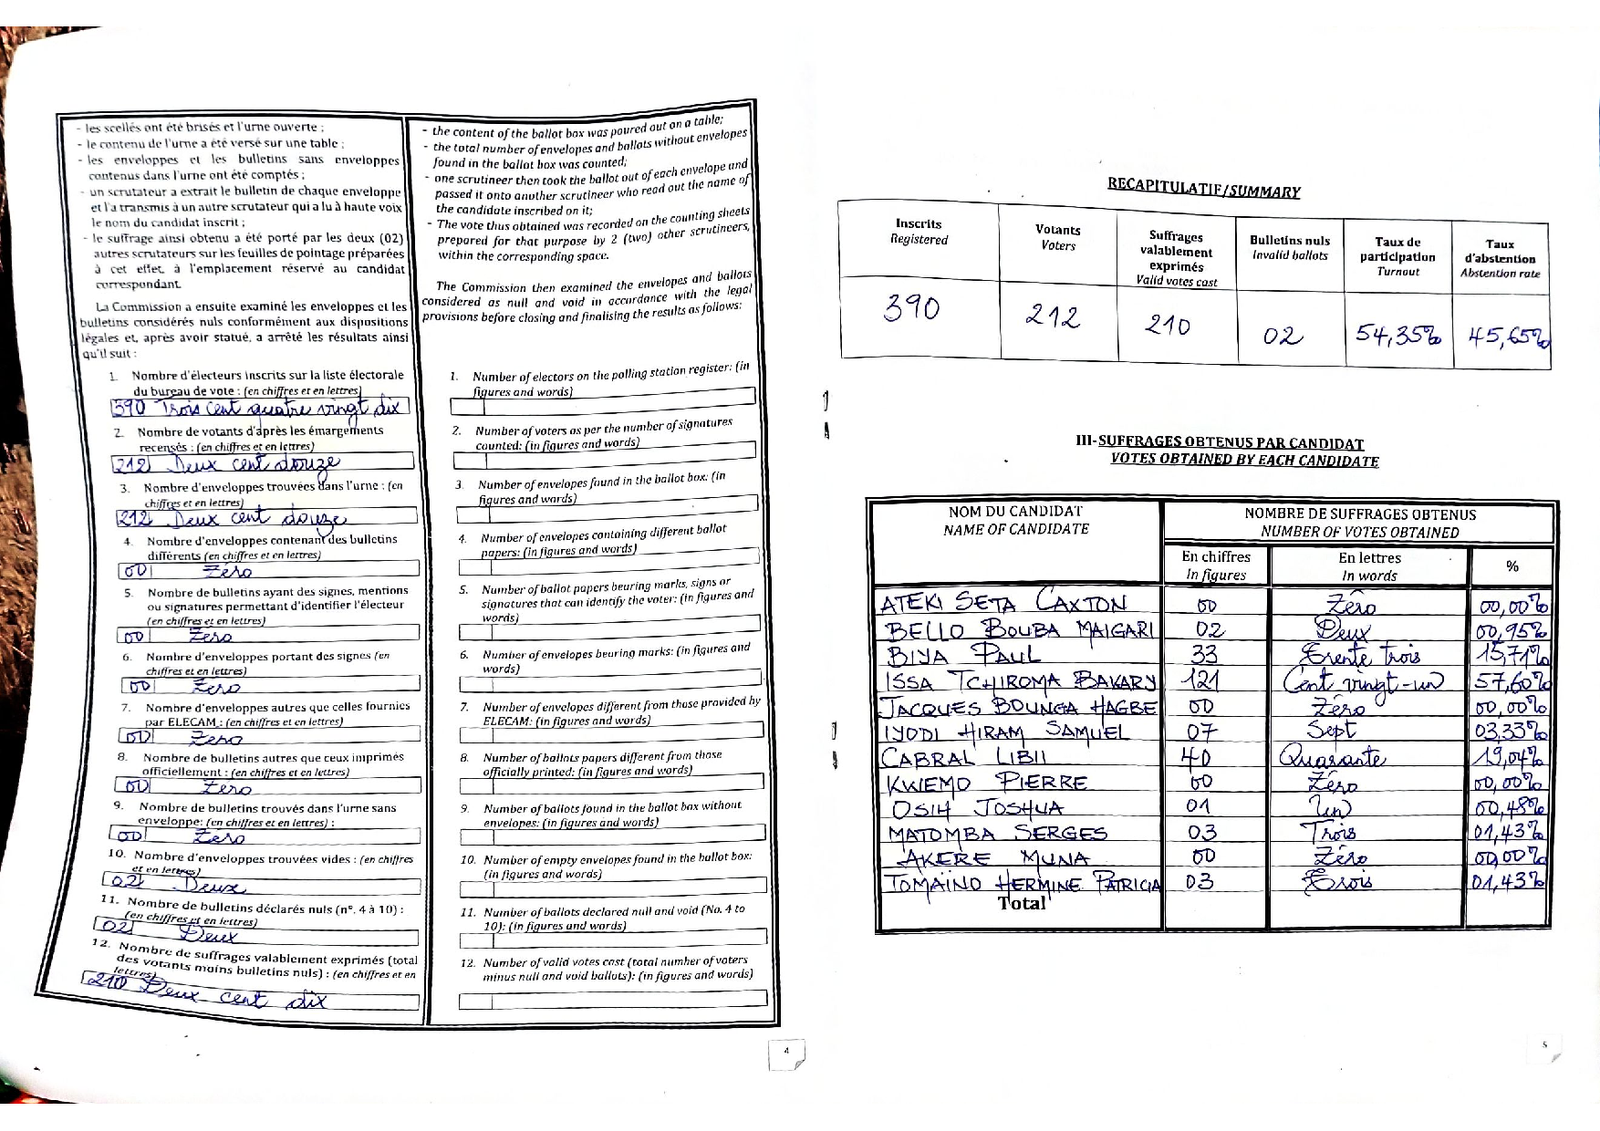 - les scellés ont été brisés et l'urne ouverte ;
- le contenu de l'urne a été versé sur une table ;
- les enveloppes et les bulletins sans enveloppes
contenus dans l'urne ont été comptés ;
- un scrutateur a extrait le bulletin de chaque enveloppe
et l'a transmis à un autre scrutateur qui a lu à haute voix
le nom du candidat inscrit ;
- le suffrage ainsi obtenu a été porté par les deux (02)
autres scrutateurs sur les feuilles de pointage préparées
à cet effet, à l'emplacement réservé au candidat
correspondant.
La Commission a ensuite examiné les enveloppes et les
bulletins considérés nuls conformément aux dispositions
légales et, après avoir statué, a arrêté les résultats ainsi
qu'il suit :
1. Nombre d'électeurs inscrits sur la liste électorale
du bureau de vote : (en chiffres et en lettres)
390 Trois cent quatre vingt dix
2. Nombre de votants d'après les émargements
recensés : (en chiffres et en lettres)
212 Deux cent douze
3. Nombre d'enveloppes trouvées dans l'urne : (en
chiffres et en lettres)
212 Deux cent douze
4. Nombre d'enveloppes contenant des bulletins
différents (en chiffres et en lettres)
00 Zéro
5. Nombre de bulletins ayant des signes, mentions
ou signatures permettant d'identifier l'électeur
(en chiffres et en lettres)
00 Zéro
6. Nombre d'enveloppes portant des signes (en
chiffres et en lettres)
00 Zéro
7. Nombre d'enveloppes autres que celles fournies
par ELECAM : (en chiffres et en lettres)
00 Zéro
8. Nombre de bulletins autres que ceux imprimés
officiellement : (en chiffres et en lettres)
00 Zéro
9. Nombre de bulletins trouvés dans l'urne sans
enveloppe: (en chiffres et en lettres) :
00 Zéro
10. Nombre d'enveloppes trouvées vides : (en chiffres
et en lettres)
02 Deux
11. Nombre de bulletins déclarés nuls (n°. 4 à 10) :
(en chiffres et en lettres)
02 Deux
12. Nombre de suffrages valablement exprimés (total
des votants moins bulletins nuls) : (en chiffres et en
lettres)
210 Deux cent dix
- the content of the ballot box was poured out on a table;
- the total number of envelopes and ballots without envelopes
found in the ballot box was counted;
- one scrutineer then took the ballot out of each envelope and
passed it onto another scrutineer who read out the name of
the candidate inscribed on it;
- The vote thus obtained was recorded on the counting sheets
prepared for that purpose by 2 (two) other scrutineers,
within the corresponding space.
The Commission then examined the envelopes and ballots
considered as null and void in accordance with the legal
provisions before closing and finalising the results as follows:
1. Number of electors on the polling station register: (in
figures and words)
2. Number of voters as per the number of signatures
counted: (in figures and words)
3. Number of envelopes found in the ballot box: (in
figures and words)
4. Number of envelopes containing different ballot
papers: (in figures and words)
5. Number of ballot papers bearing marks, signs or
signatures that can identify the voter: (in figures and
words)
6. Number of envelopes bearing marks: (in figures and
words)
7. Number of envelopes different from those provided by
ELECAM: (in figures and words)
8. Number of ballots papers different from those
officially printed: (in figures and words)
9. Number of ballots found in the ballot box without
envelopes: (in figures and words)
10. Number of empty envelopes found in the ballot box:
(in figures and words)
11. Number of ballots declared null and void (No. 4 to
10): (in figures and words)
12. Number of valid votes cast (total number of voters
minus null and void ballots): (in figures and words)
4
RECAPITULATIF/SUMMARY
Inscrits Registered Votants Voters Suffrages valablement exprimés Valid votes cast Bulletins nuls Invalid ballots Taux de participation Turnout Taux d'abstention Abstention rate
390 212 210 02 54,35% 45,65%
III-SUFFRAGES OBTENUS PAR CANDIDAT
VOTES OBTAINED BY EACH CANDIDATE
NOM DU CANDIDAT NOMBRE DE SUFFRAGES OBTENUS
NAME OF CANDIDATE NUMBER OF VOTES OBTAINED
En chiffres En lettres %
In figures In words
ATEKI SETA CAXTON 00 Zéro 00,00%
BELLO BOUBA MAIGARI 02 Deux 00,95%
BIYA PAUL 33 Trente trois 15,71%
ISSA TCHIROMA BAKARY 121 Cent vingt-un 57,60%
JACQUES BOUNGA HAGBE 00 Zéro 00,00%
IYODI HIRAM SAMUEL 07 Sept 03,33%
CABRAL LIBII 40 Quarante 19,04%
KWEMO PIERRE 00 Zéro 00,00%
OSIH JOSHUA 01 Un 00,48%
MATOMBA SERGES 03 Trois 01,43%
AKERE MUNA 00 Zéro 00,00%
TOMAINO HERMINE PATRICIA 03 Trois 01,43%
Total
5